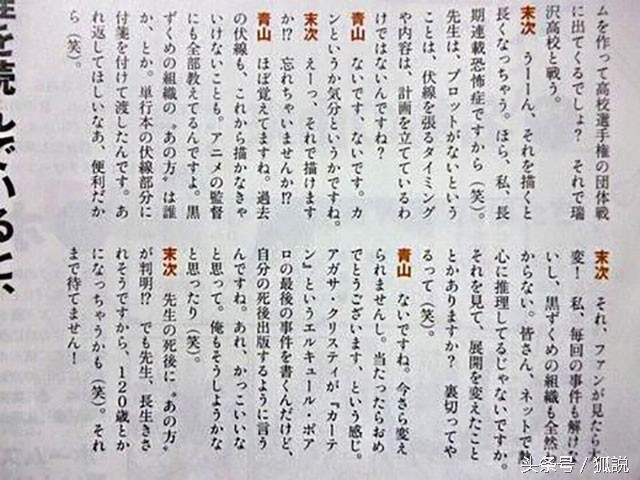 ムを作って高校選手権の団体戦
に出てくるでしょ？　それで瑞
沢高校と戦う。
末次　うーーん、それを描くと
長くなっちゃう。ほら、私、長
期連載恐怖症ですから（笑）。
先生は、プロットがないという
ことは、伏線を張るタイミング
や内容は、計画を立てているわ
けではないんですね？
青山　ないです、ないです。カ
ンというか気分というかですね。
末次　えーっ、それで描けます
か!?　忘れちゃいませんか!?
青山　ほぼ覚えてますね。過去
の伏線も、これから描かなきゃ
いけないことも。アニメの監督
にも全部教えてるんですよ。黒
ずくめの組織の〝あの方〟は誰
か、とか。単行本の伏線部分に
付箋を付けて渡したんです。あ
れ返してほしいなあ、便利だか
ら（笑）。
末次　それ、ファンが見たら大
変！　私、毎回の事件も解けな
いし、黒ずくめの組織も全然わ
からない。皆さん、ネットで熱
心に推理してるじゃないですか。
それを見て、展開を変えたこと
とかありますか？　裏切ってや
るって（笑）。
青山　ないですね。今さら変え
られませんし。当たったらおめ
でとうございます、という感じ。
アガサ・クリスティが『カーテ
ン』というエルキュール・ポア
ロの最後の事件を書くんだけど、
自分の死後出版するように言う
んですね。あれ、かっこいいな
と思って。俺もそうしようかな
と思ったり（笑）。
末次　先生の死後に〝あの方〟
が判明!?　でも先生、長生きさ
れそうですから、120歳とか
になっちゃうかも（笑）。それ
まで待てません！
を読んでいると、
头条号 / 狐説